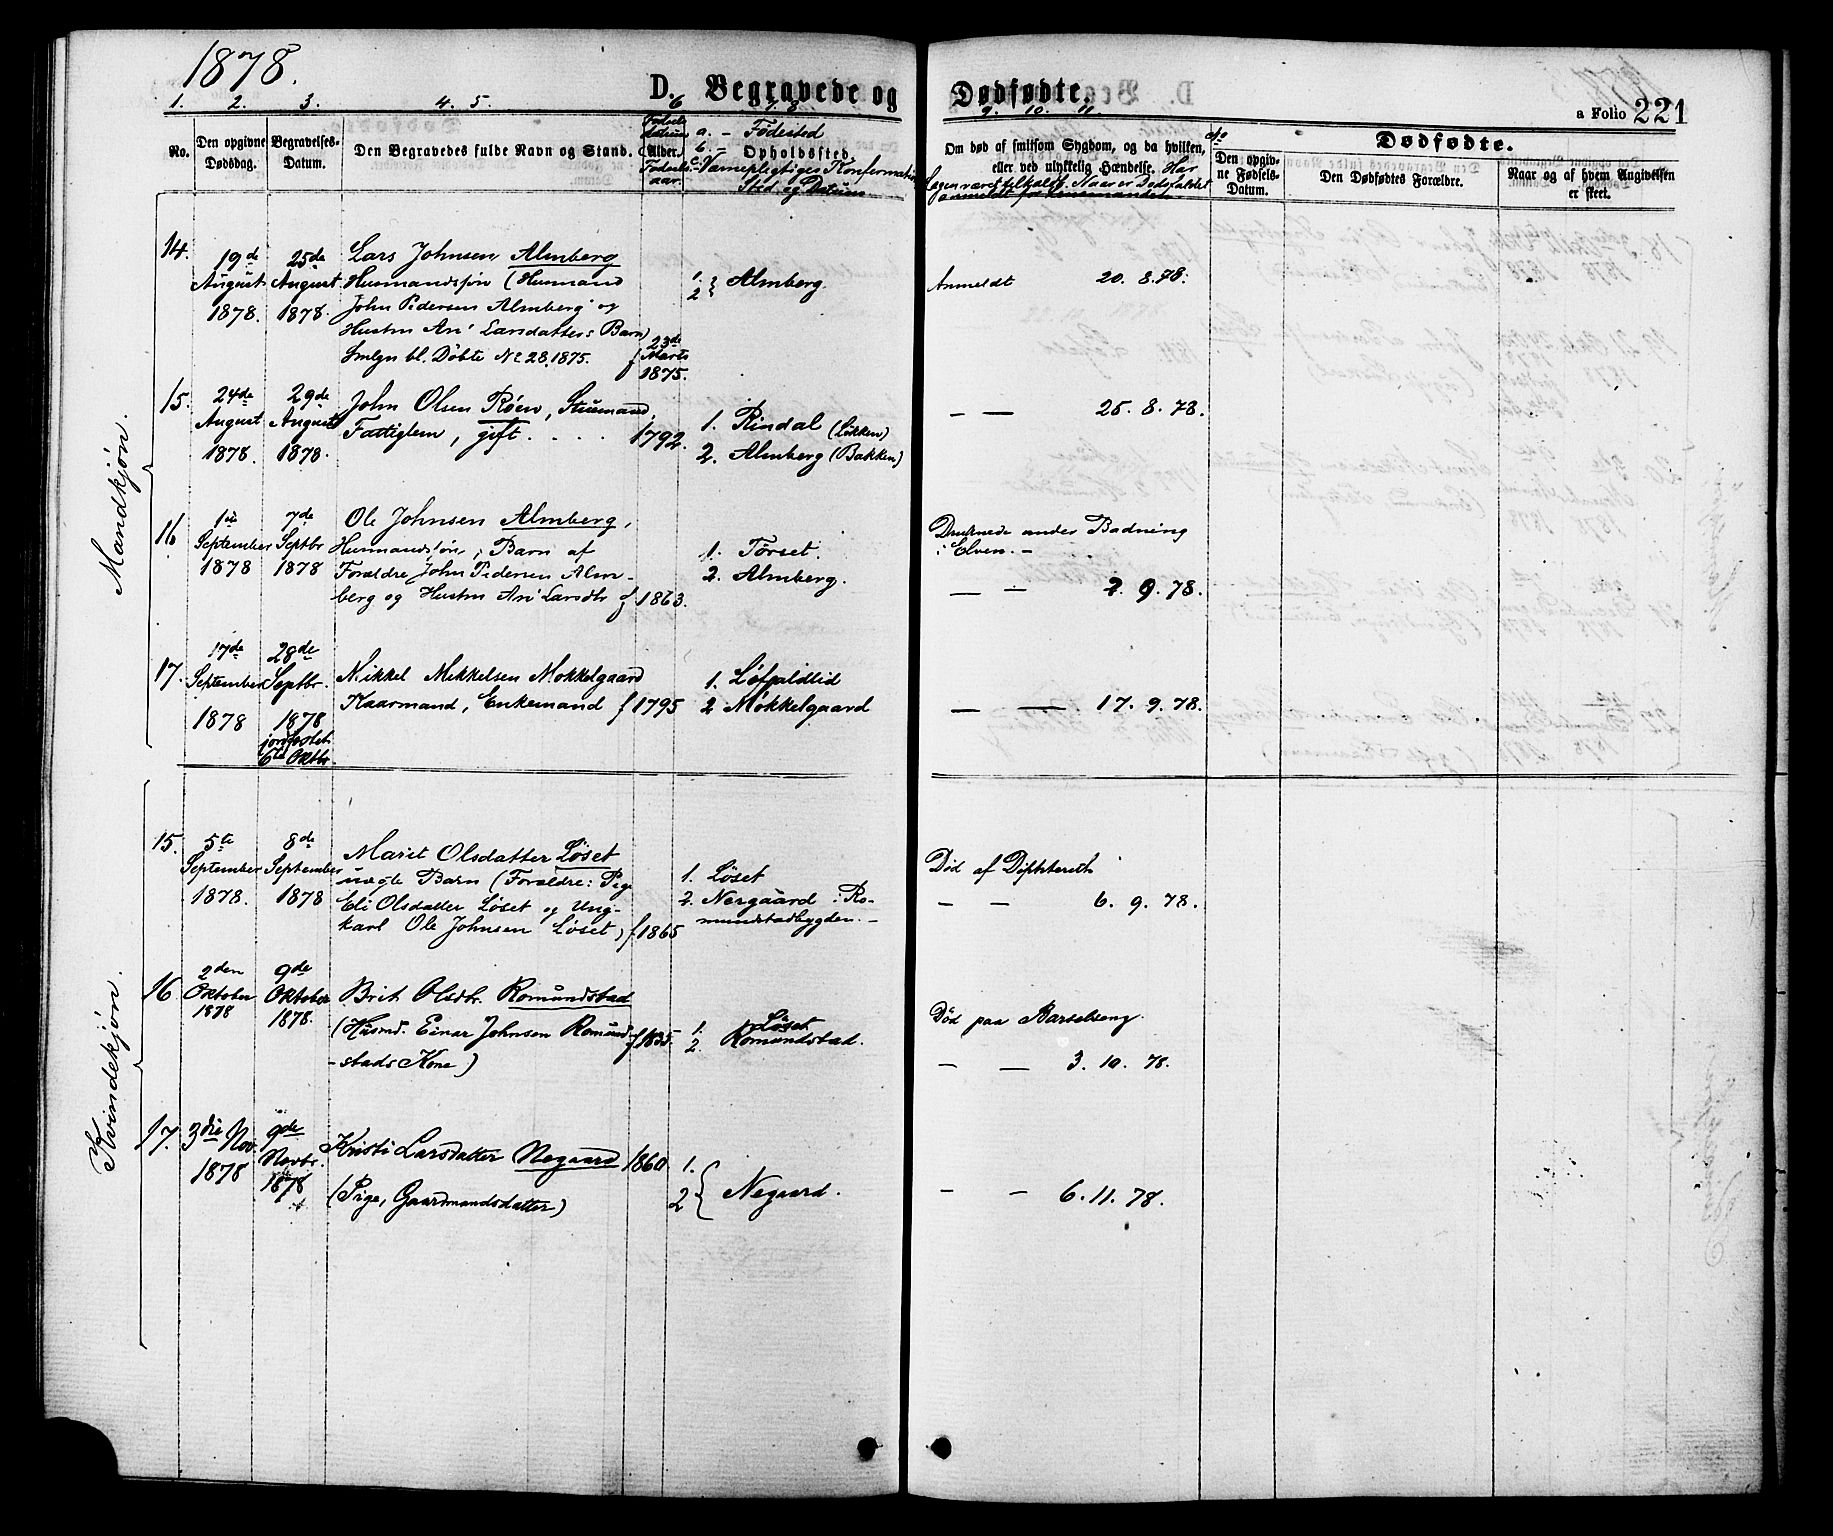 1878.
D. Begravede og Dødfødte.
a Folio 221
1. 2. 3. 4. 5. 6 7. 8. 9. 10. 11.
No.
Den opgivne Dødsdag.
Begravelses-Datum.
Den Begravedes fulde Navn og Stand.
Fødsels Datum
(Alder.)
Fødsels-
aar.
a. – Fødested
b. – Opholdssted.
c. Værnepligtiges Konfirmations
Sted og Datum
Om død af smitsom Sygdom, og da hvilken,
eller ved ulykkelig Hændelse. Har
Lægen været tilkaldt. Naar er Dødsfaldet
anmeldt for Lensmanden.
No
Dødfødte.
Den opgiv-
ne Fødsels-
Datum.
Den Dødfødtes Forældre.
Naar og af hvem Angivelsen
er skeet.
Mandkjøn.
14.
19de
August
1878.
25de
August
1878.
Lars Johnsen Almberg
Husmandssøn (Husmand
John Pedersen Almberg og
Hustru Ari Larsdatters Barn)
Smlgn bl. Døbte No 28, 1875.
f 23de
Marts
1875.
1.
2 } Almberg.
Anmeldt 20. 8. 78.
15.
24de
August
1878.
29de
August
1878.
John Olsen Røen, Stuemand,
Fattiglem, gift. . . . .
1792.
1. Rindal (Løkken)
2. Almberg (Bakken)
– — 25. 8. 78.
16
1ste
September
1878
7de
Septbr
1878
Ole Johnsen Almberg,
Husmandssøn, Barn af
Forældre John Pedersen Alm-
berg og Hustru Ari Larsdtr
f 1863.
1. Tørset.
2. Almberg.
Druknede under Badning
i Elven. –
— – 2. 9. 78.
17.
17de
September
1878
28de
Septbr.
1878
jordfæstet
6te Oktbr.
Mikkel Mikkelsen Møkkelgaard
Kaarmand, Enkemand
f 1795
1. Løfaldlid
2 Møkkelgaard
— — 17. 9. 78.
Kvindekjøn.
15.
5te
September
1878.
8de
September
1878
Marit Olsdatter Løset
uægte Barn (Forældre: Pige
Eli Olsdatter Løset og Ung-
karl Ole Johnsen Løset)
f 1865
1. Løset
2. Nergaard i Ro-
mundstadbygden. –
Død af Diphterith
– – 6. 9. 78.
16
2den
Oktober
1878
9de
Oktober
1878.
Brit Olsdtr. Romundstad
(Husmd. Einar Johnsen Romund-
-stads Kone)
f 1835.
1. Løset
2. Romundstad.
Død paa Barselseng.
– — 3. 10. 78.
17.
3die Nov.
1878
9de
Novbr.
1878
Kristi Larsdatter Negaard
(Pige, Gaardmandsdatter)
1860
1.
2 { Negaard.
– – 6. 11. 78.